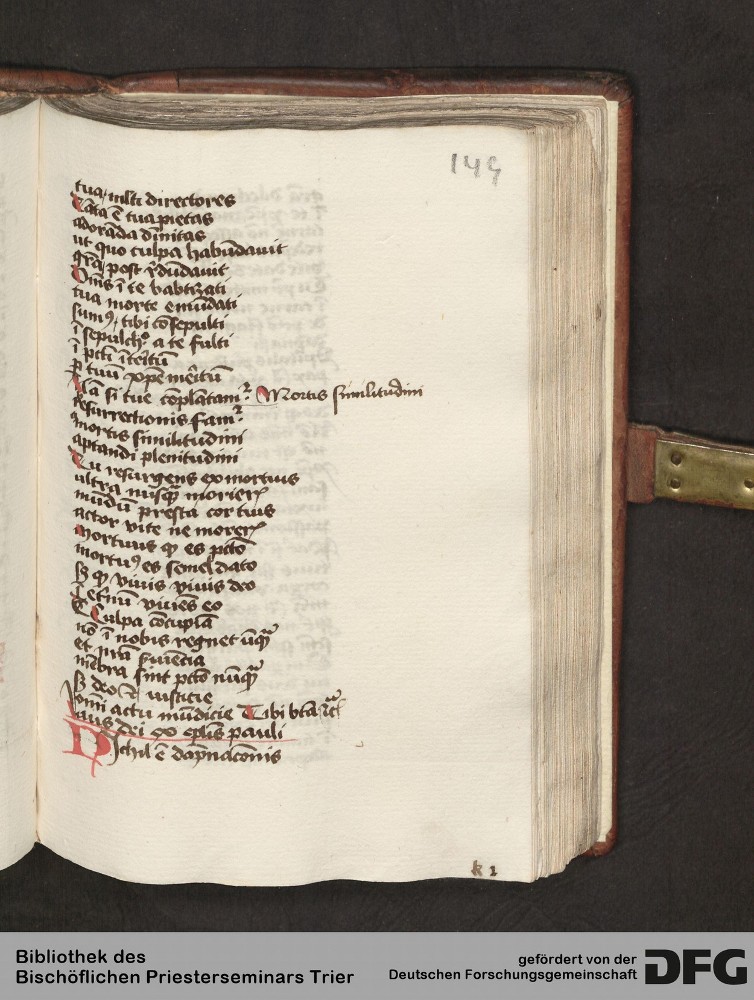 149
tua, mlti directores
Tāta ē tua pietas
adorāda dīnitas
ut quo culpa habūdavit
grā post rdūdavit
Oīns ī te babtizati
tua morte emūdati
sumꝰ, tibi cōsepulti
ī sepulchº a te fulti
ī pcti īteritū
p tuū xpe meritū
Nā si tue cōplātam² Mortis similitudini
resurrectionis fam²
mortis similitudini
aptandi plenitudini
Tu resurgens ex mortuis
ultra nusqͣ morierꝭ
mūdū presta cor tuis
actor vite ne morerꝭ
Mortuus qꝫ es pctō
mortuꝰ es semel dato
sꝫ qꝫ vivis vivis deo
eternū viviēs eo
Culpa cōcupīa
nō ī nobis regnet ūqͣ
et nrā sʼviēcia
mēbra sint pctō nūqͣ
sꝫ deo iusticie
omi actu mūdicie Tibi btā
laus dei ex eplis pauli
Nichil ē dāpnacōnis
k 1
Bibliothek des
Bischöflichen Priesterseminars Trier
gefördert von der
Deutschen Forschungsgemeinschaft
DFG